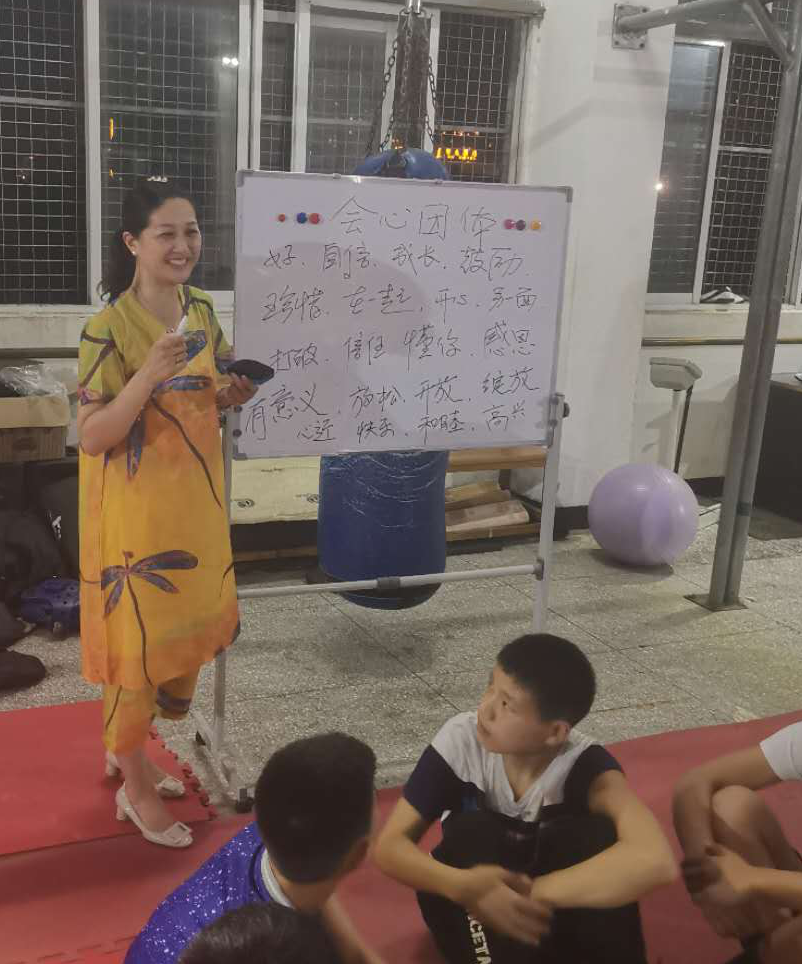 会心团体
好、自信、成长、鼓励、
珍惜、在一起、开心、另一面
打破、信任、懂你、感恩
有意义、放松、开放、绽放
心近、快乐、和睦、高兴
CIETA